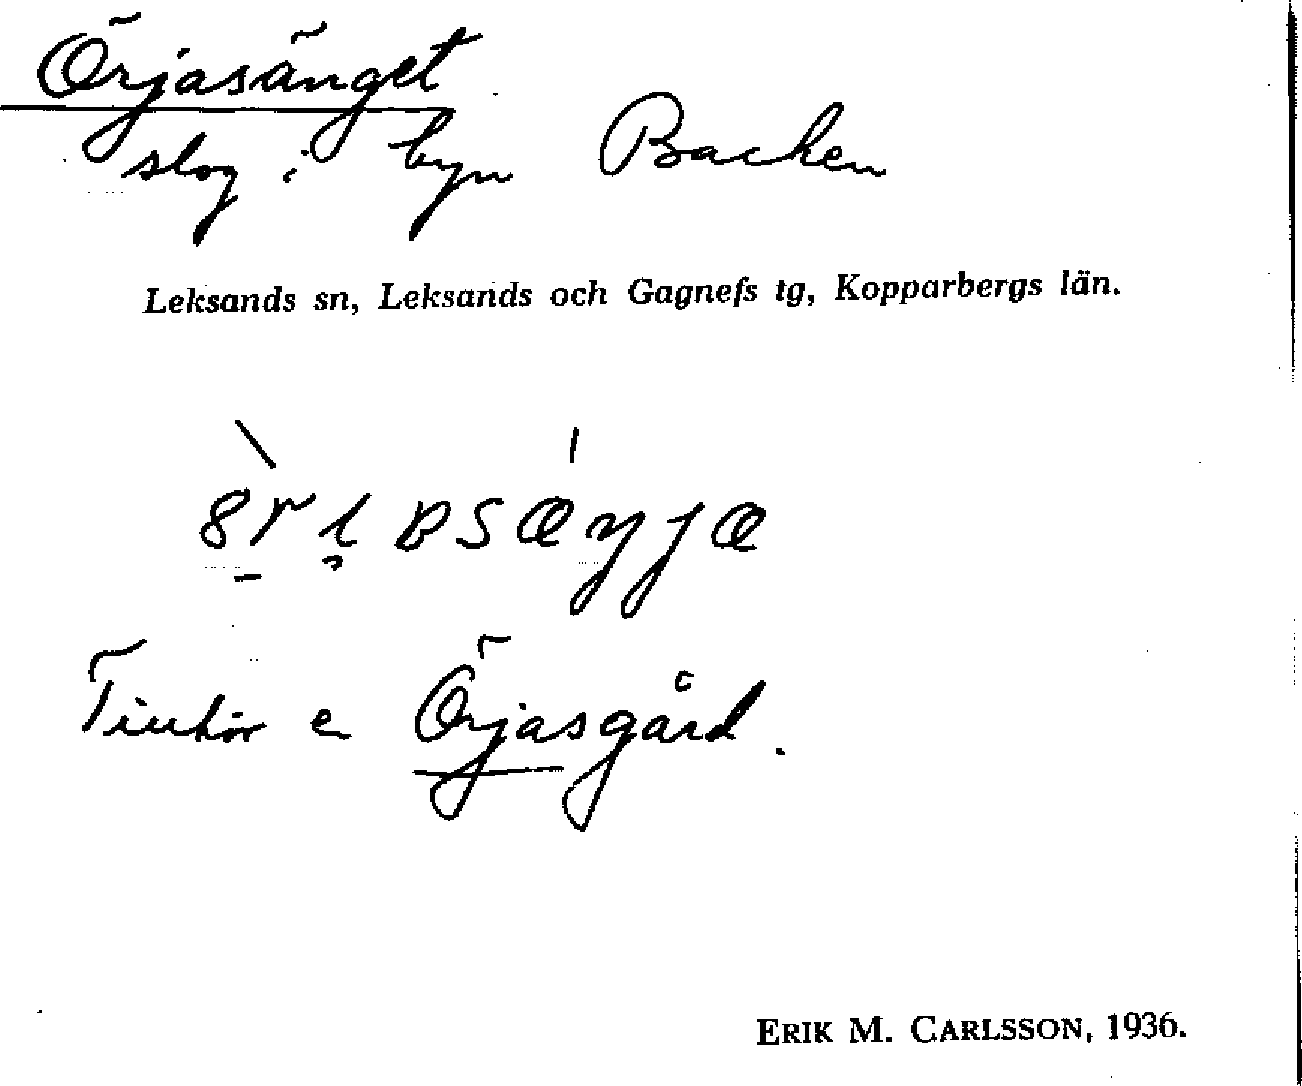 Örjasänget
slog i byn Backen
Leksands sn, Leksands och Gagnefs tg, Kopparbergs län.
Tillhör en Örjasgård.
ERIK M. CARLSSON, 1936.